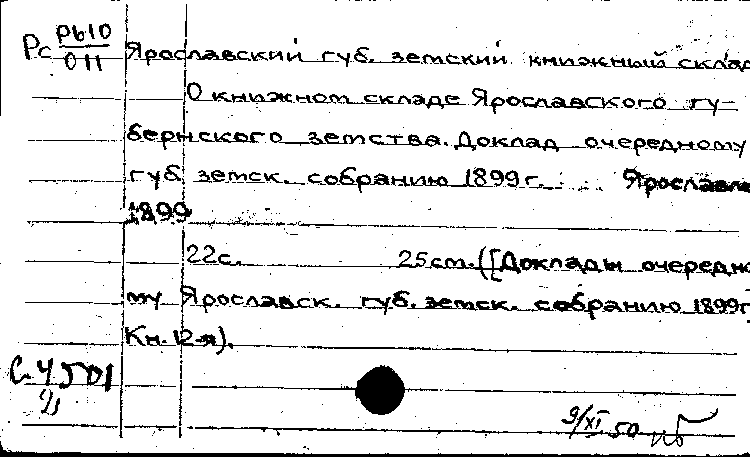 Рс РЫО Ярославский губ. земский книжный склад
011
О книжном складе Ярославского гу-
бернского земства. Доклад очередному
губ. земск. собранию 1899 г. Ярославль
1899
22с. 25 cm. ([Доклады очередно
му Ярославск. губ. земск. собранию 1899г
Кн. 12-я).
С. 4501
9/XI 50